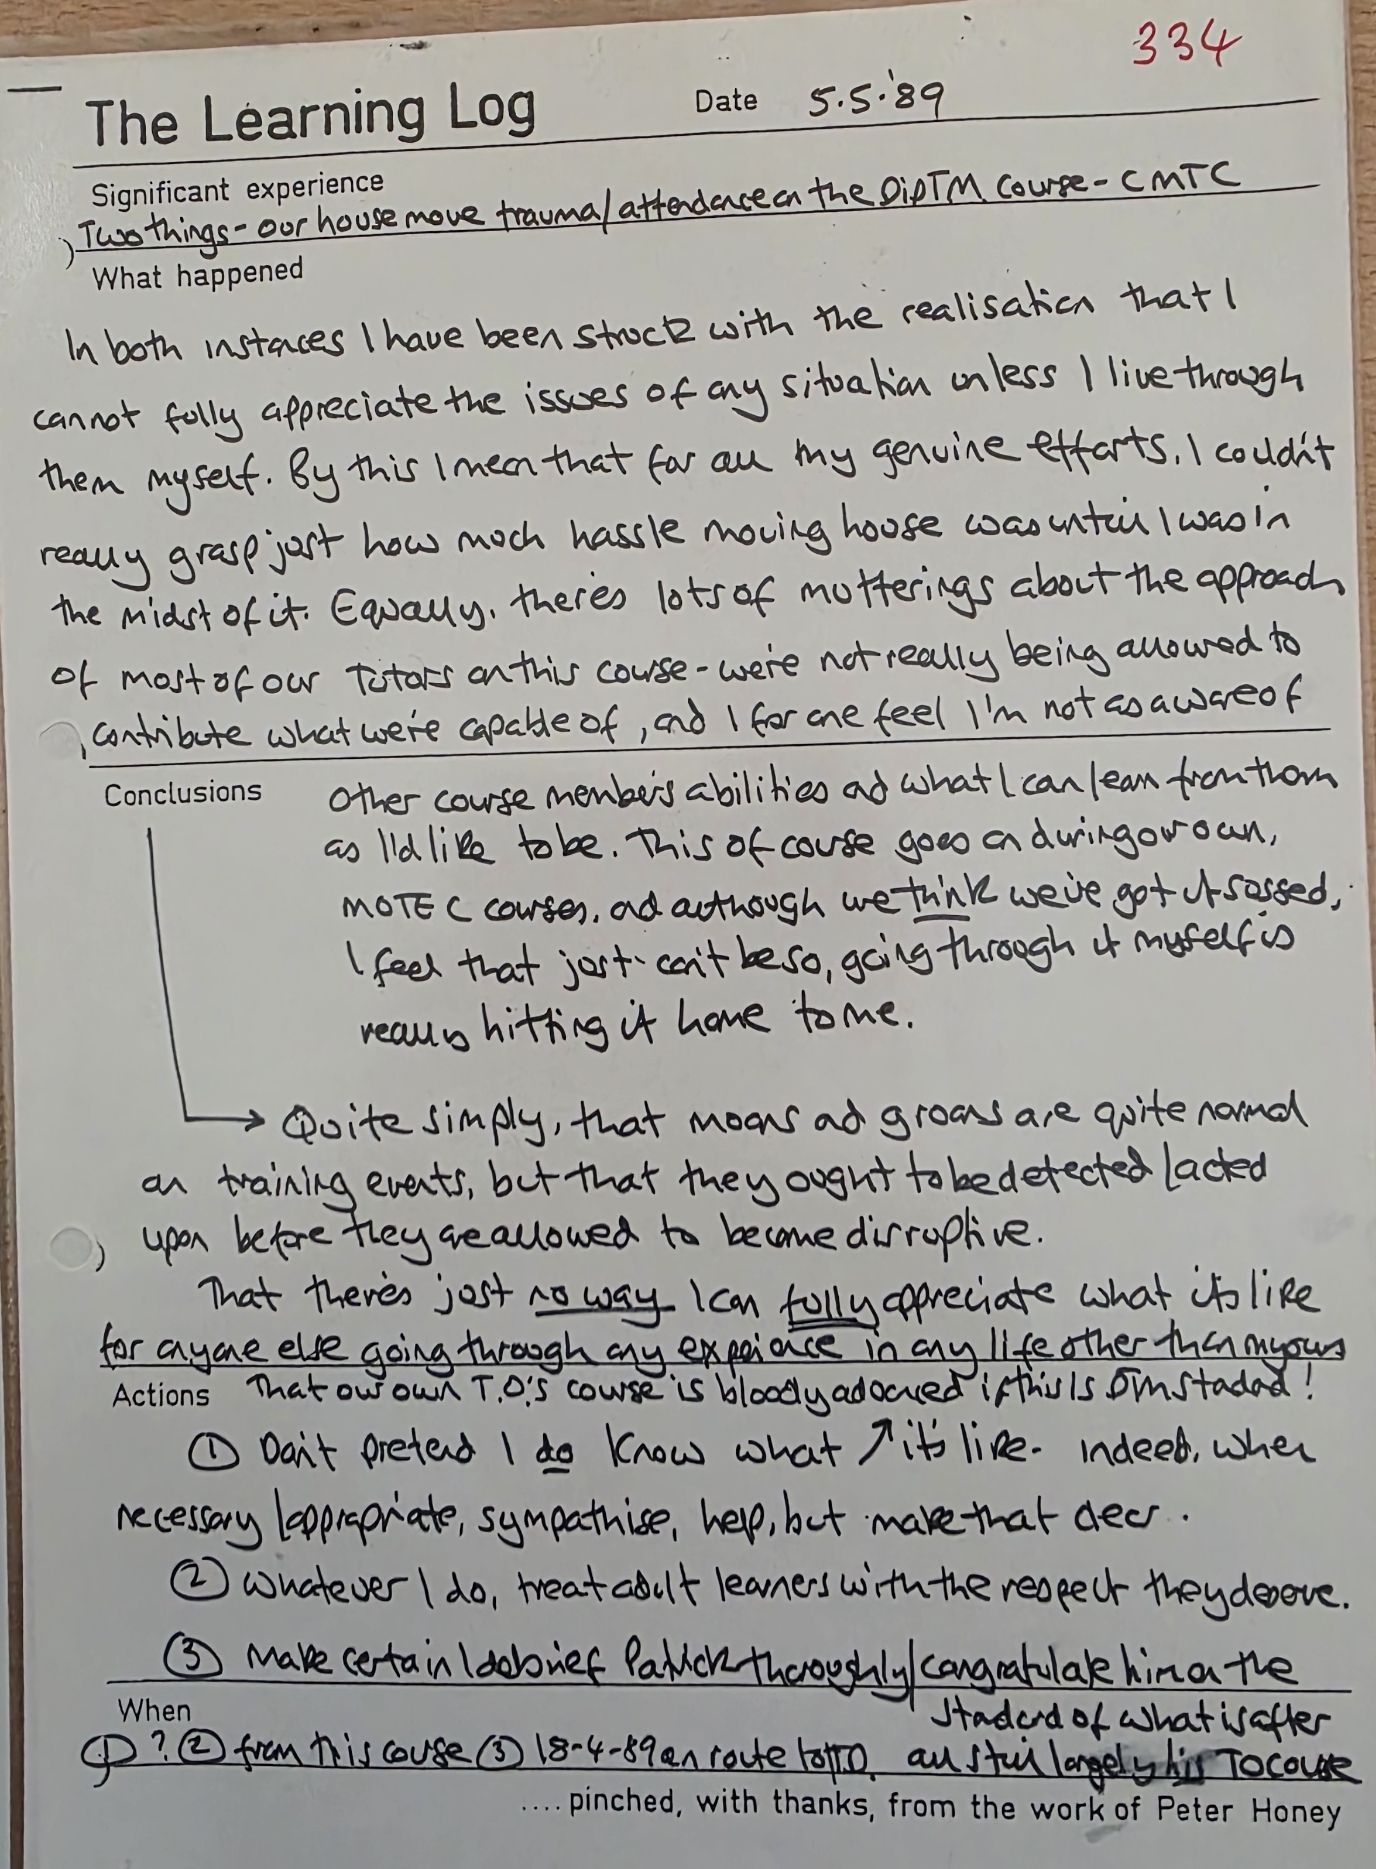 334
The Learning Log
Date 5.5.'89
Significant experience
Two things - our house move trauma/attendance on the DipTM course - CMTC
What happened
In both instances I have been struck with the realisation that I
cannot fully appreciate the issues of any situation unless I live through
them myself. By this I mean that for all my genuine efforts, I couldn't
really grasp just how much hassle moving house was until I was in
the midst of it. Equally, there's lots of mutterings about the approach
of most of our Tutors on this course - we're not really being allowed to
contribute what we're capable of, and I for one feel I'm not as aware of
Conclusions
other course members abilities and what I can learn from them
as I'd like to be. This of course goes on during our own,
MOTEC courses, and although we think we've got it sussed,
I feel that just can't be so, going through it myself is
really hitting it home to me.
Quite simply, that moans and groans are quite normal
on training events, but that they ought to be detected/acted
upon before they are allowed to become disruptive.
That there's just no way I can fully appreciate what it's like
for anyone else going through any experience in any life other than my own
Actions That our own T.O.'s course is bloody advanced if this is Dm standard!
① Don't pretend I do know what it's like - indeed, when
necessary/appropriate, sympathise, help, but make that clear.
② Whatever I do, treat adult learners with the respect they deserve.
③ Make certain I debrief Patrick thoroughly/congratulate him on the
standard of what is after
When
① ? ② from this course ③ 18-4-89 en route to all still largely his TO course
.... pinched, with thanks, from the work of Peter Honey